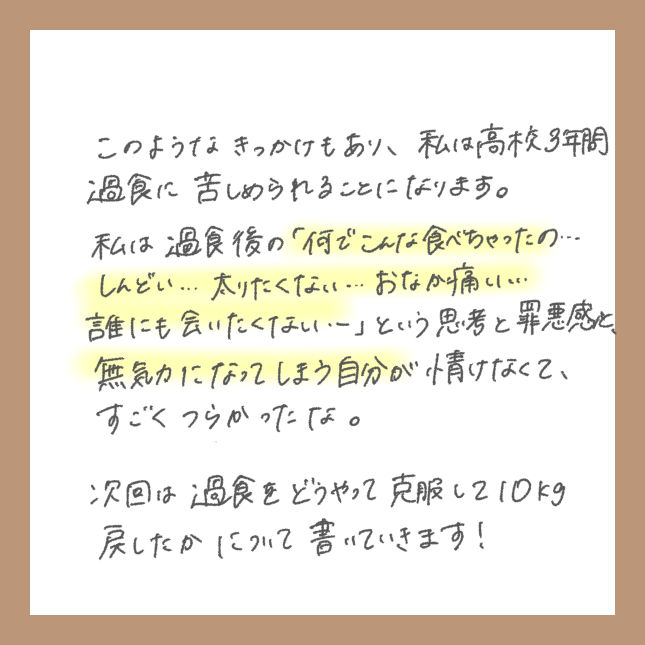 このようなきっかけもあり、私は高校3年間
過食に苦しめられることになります。
私は過食後の「何でこんな食べちゃったの…
しんどい…太りたくない…おなか痛い…
誰にも会いたくないー」という思考と罪悪感と、
無気力になってしまう自分が情けなくて、
すごくつらかったな。
次回は過食をどうやって克服して10kg
戻したかについて書いていきます!